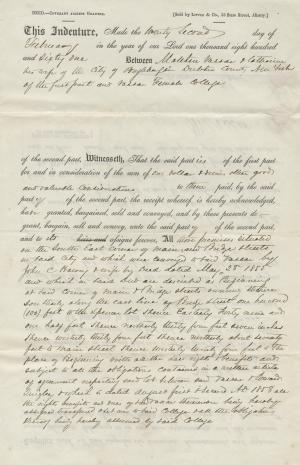 DEED.—COVENANT AGAINST GRANTOR. [Sold by Little & Co., 53 State Street, Albany.]
This Indenture, Made the twenty second day of
February in the year of our Lord one thousand eight hundred
and sixty one Between Matthew Vassar & Catharine
his wife of the City of Poughkeepsie Dutchess County New York
of the first part and Vassar Female College
of the second part, Witnesseth, That the said parties of the first part
for and in consideration of the sum of one dollar & other good
and valuable considerations to them paid, by the said
party of the second part, the receipt whereof is hereby acknowledged,
have granted, bargained, sold and conveyed, and by these presents do
grant, bargain, sell and convey, unto the said party of the second part,
and to its assigns forever, All those premises situated
on the South East corner of Main and Bridge Streets
in said City and which were conveyed to said Vassar by
John C & wife by deed dated May 1855
and which in said deed are described as Beginning
at said corner of Main & Bridge Streets running thence
southerly along the east line of Bridge street one hundred
(100) feet to the lot thence Easterly forty nine and
one half feet thence northerly thirty four feet seven inches
thence westerly thirty four feet thence northerly about seventy
feet to Main street thence westerly twenty feet to the
place of Beginning with all the rights & benefits and
subject to all the obligations contained in a written article
of agreement respecting said lot between said Vassar & Edward
& which is dated August first & Second AD 1858 all
the right benefits and of said Vassar thereunder being hereby
assigned transferred and to said College & all the obligations
being hereby assumed by said College